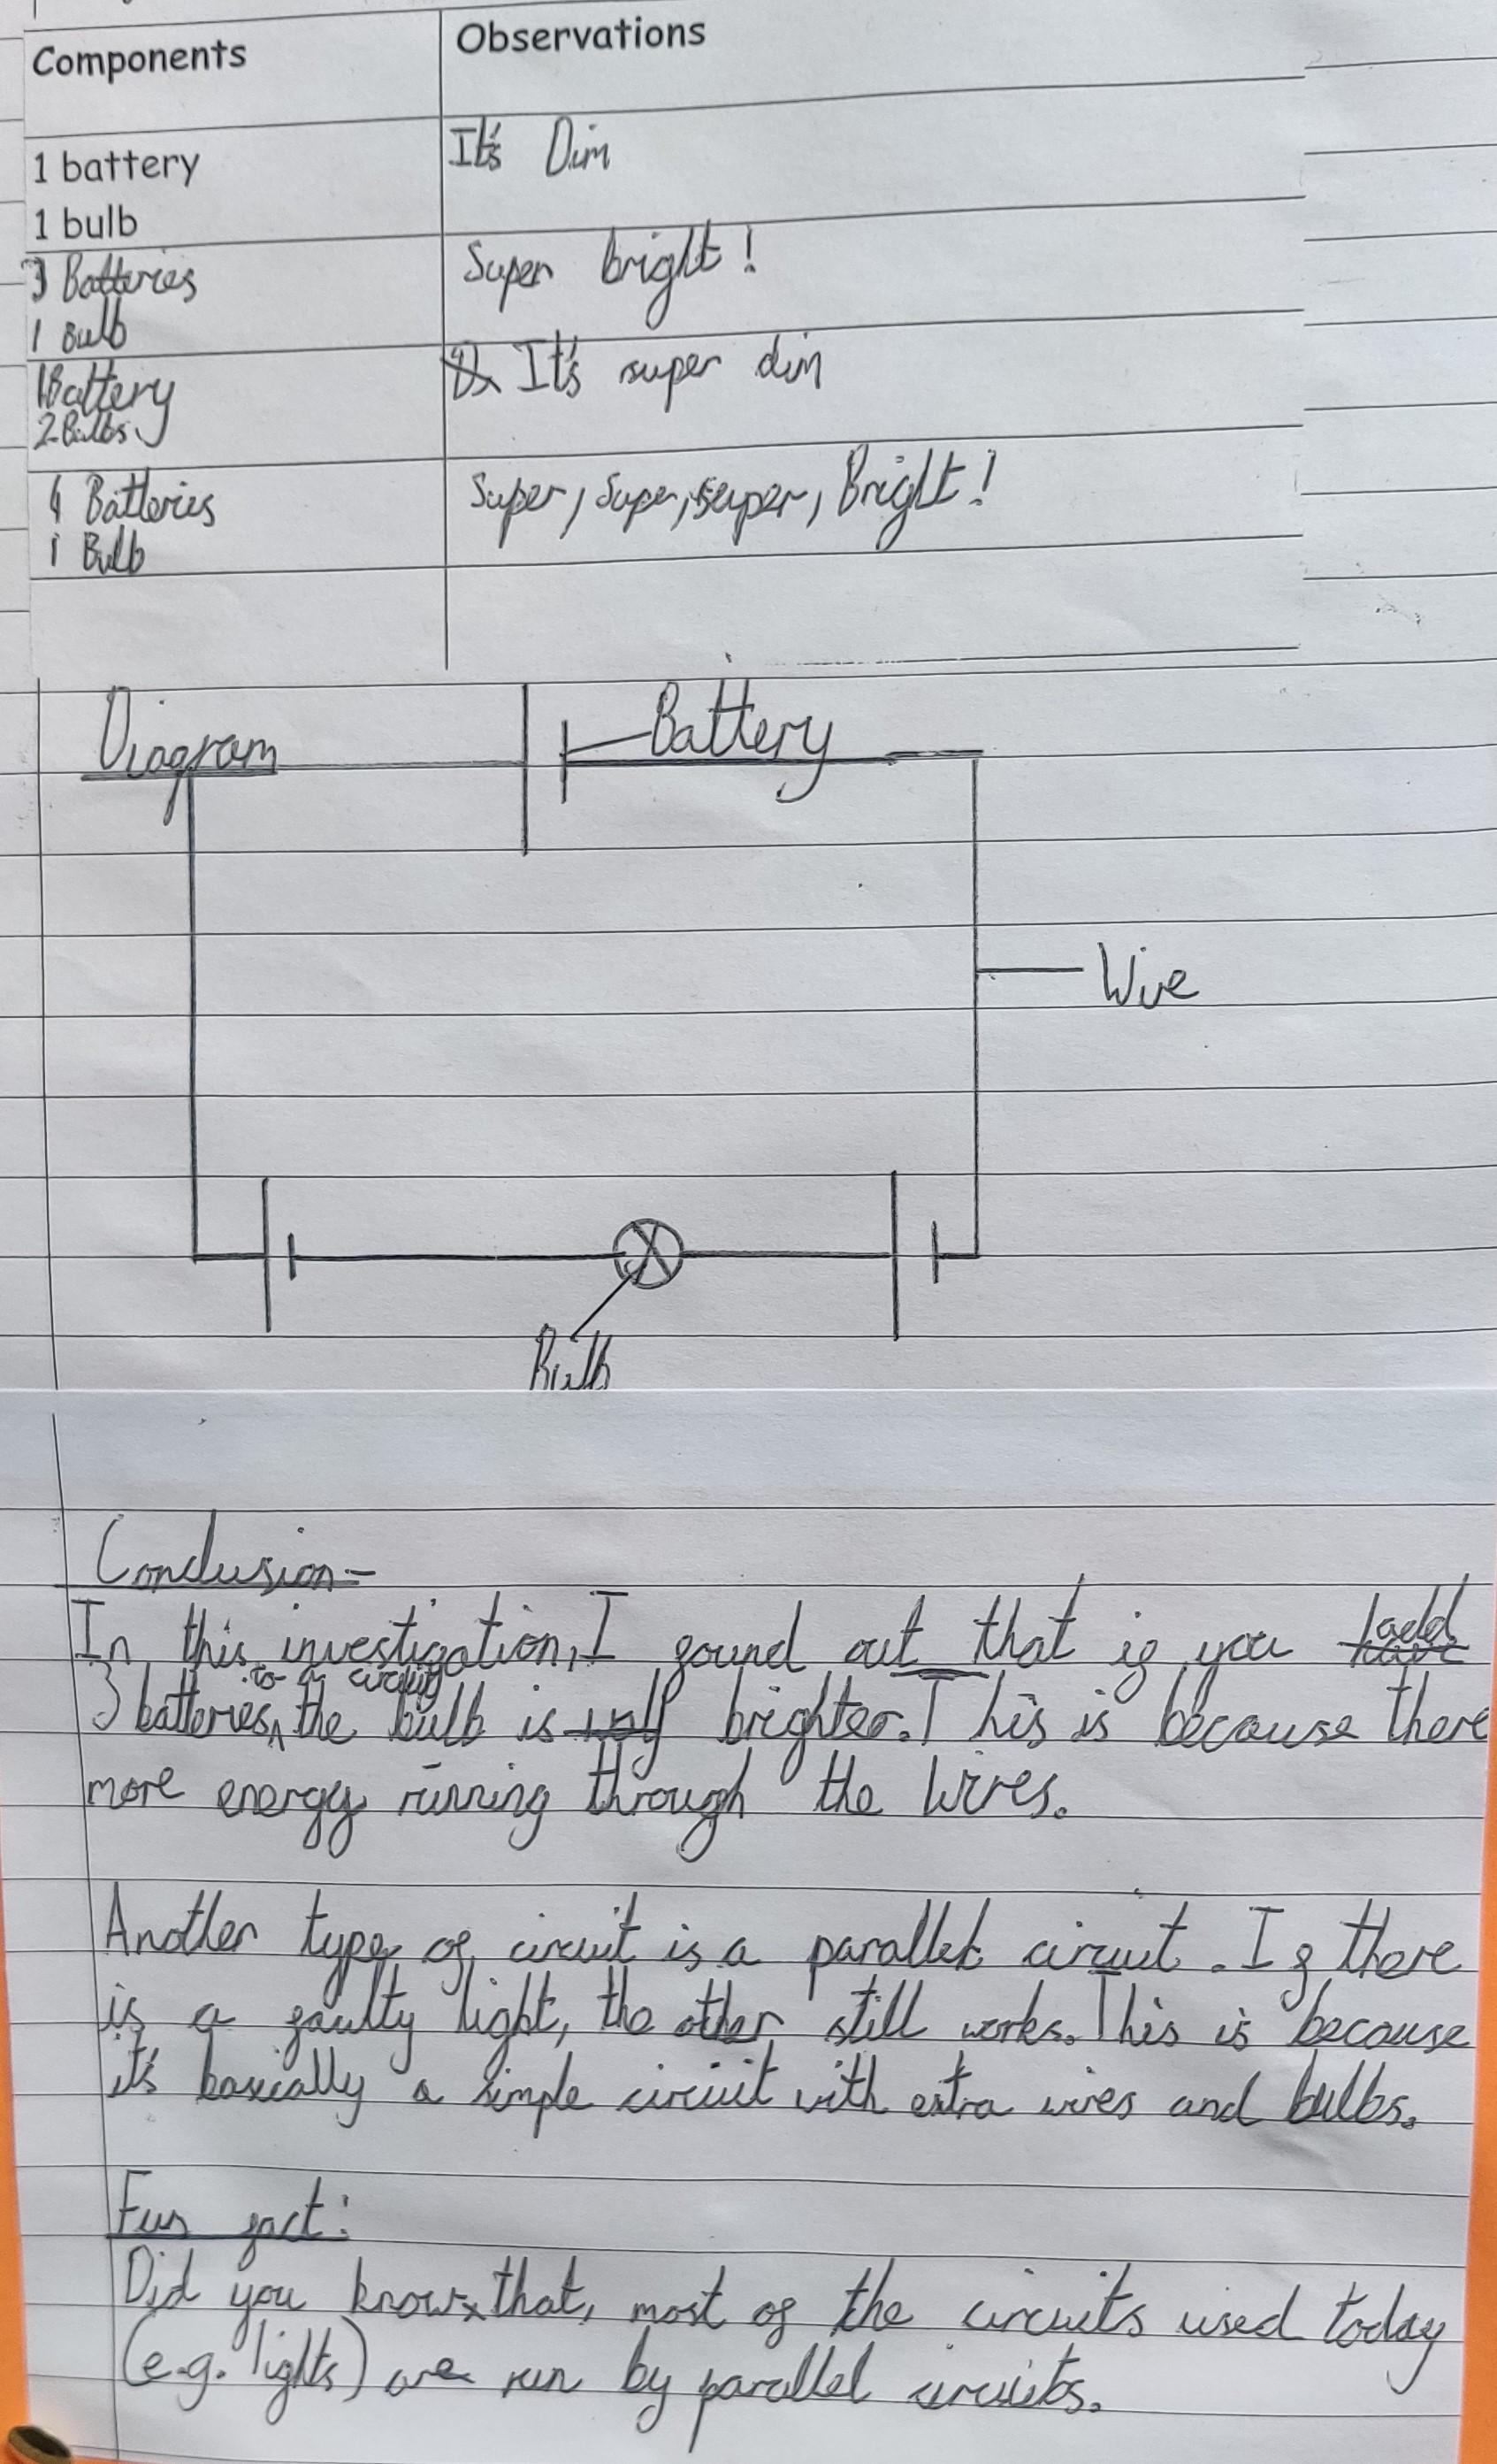 Components Observations
1 battery It's Dim
1 bulb
3 Batteries Super bright!
1 Bulb
1Battery It's super dim
2 Bulbs
4 Batteries Super, Super, super, Bright!
1 Bulb
Diagram Battery
Wire
Bulb
Conclusion-
In this investigation, I found out that if you add
to a circuit
3 batteries, the bulb is brighter. This is because there
more energy running through the Wires.
Another type of circuit is a parallel circuit. If there
is a faulty light, the other still works. This is because
it's basically a simple circuit with extra wires and bulbs.
Fun fact:
Did you know that, most of the circuits used today
(e.g. lights) are run by parallel circuits.